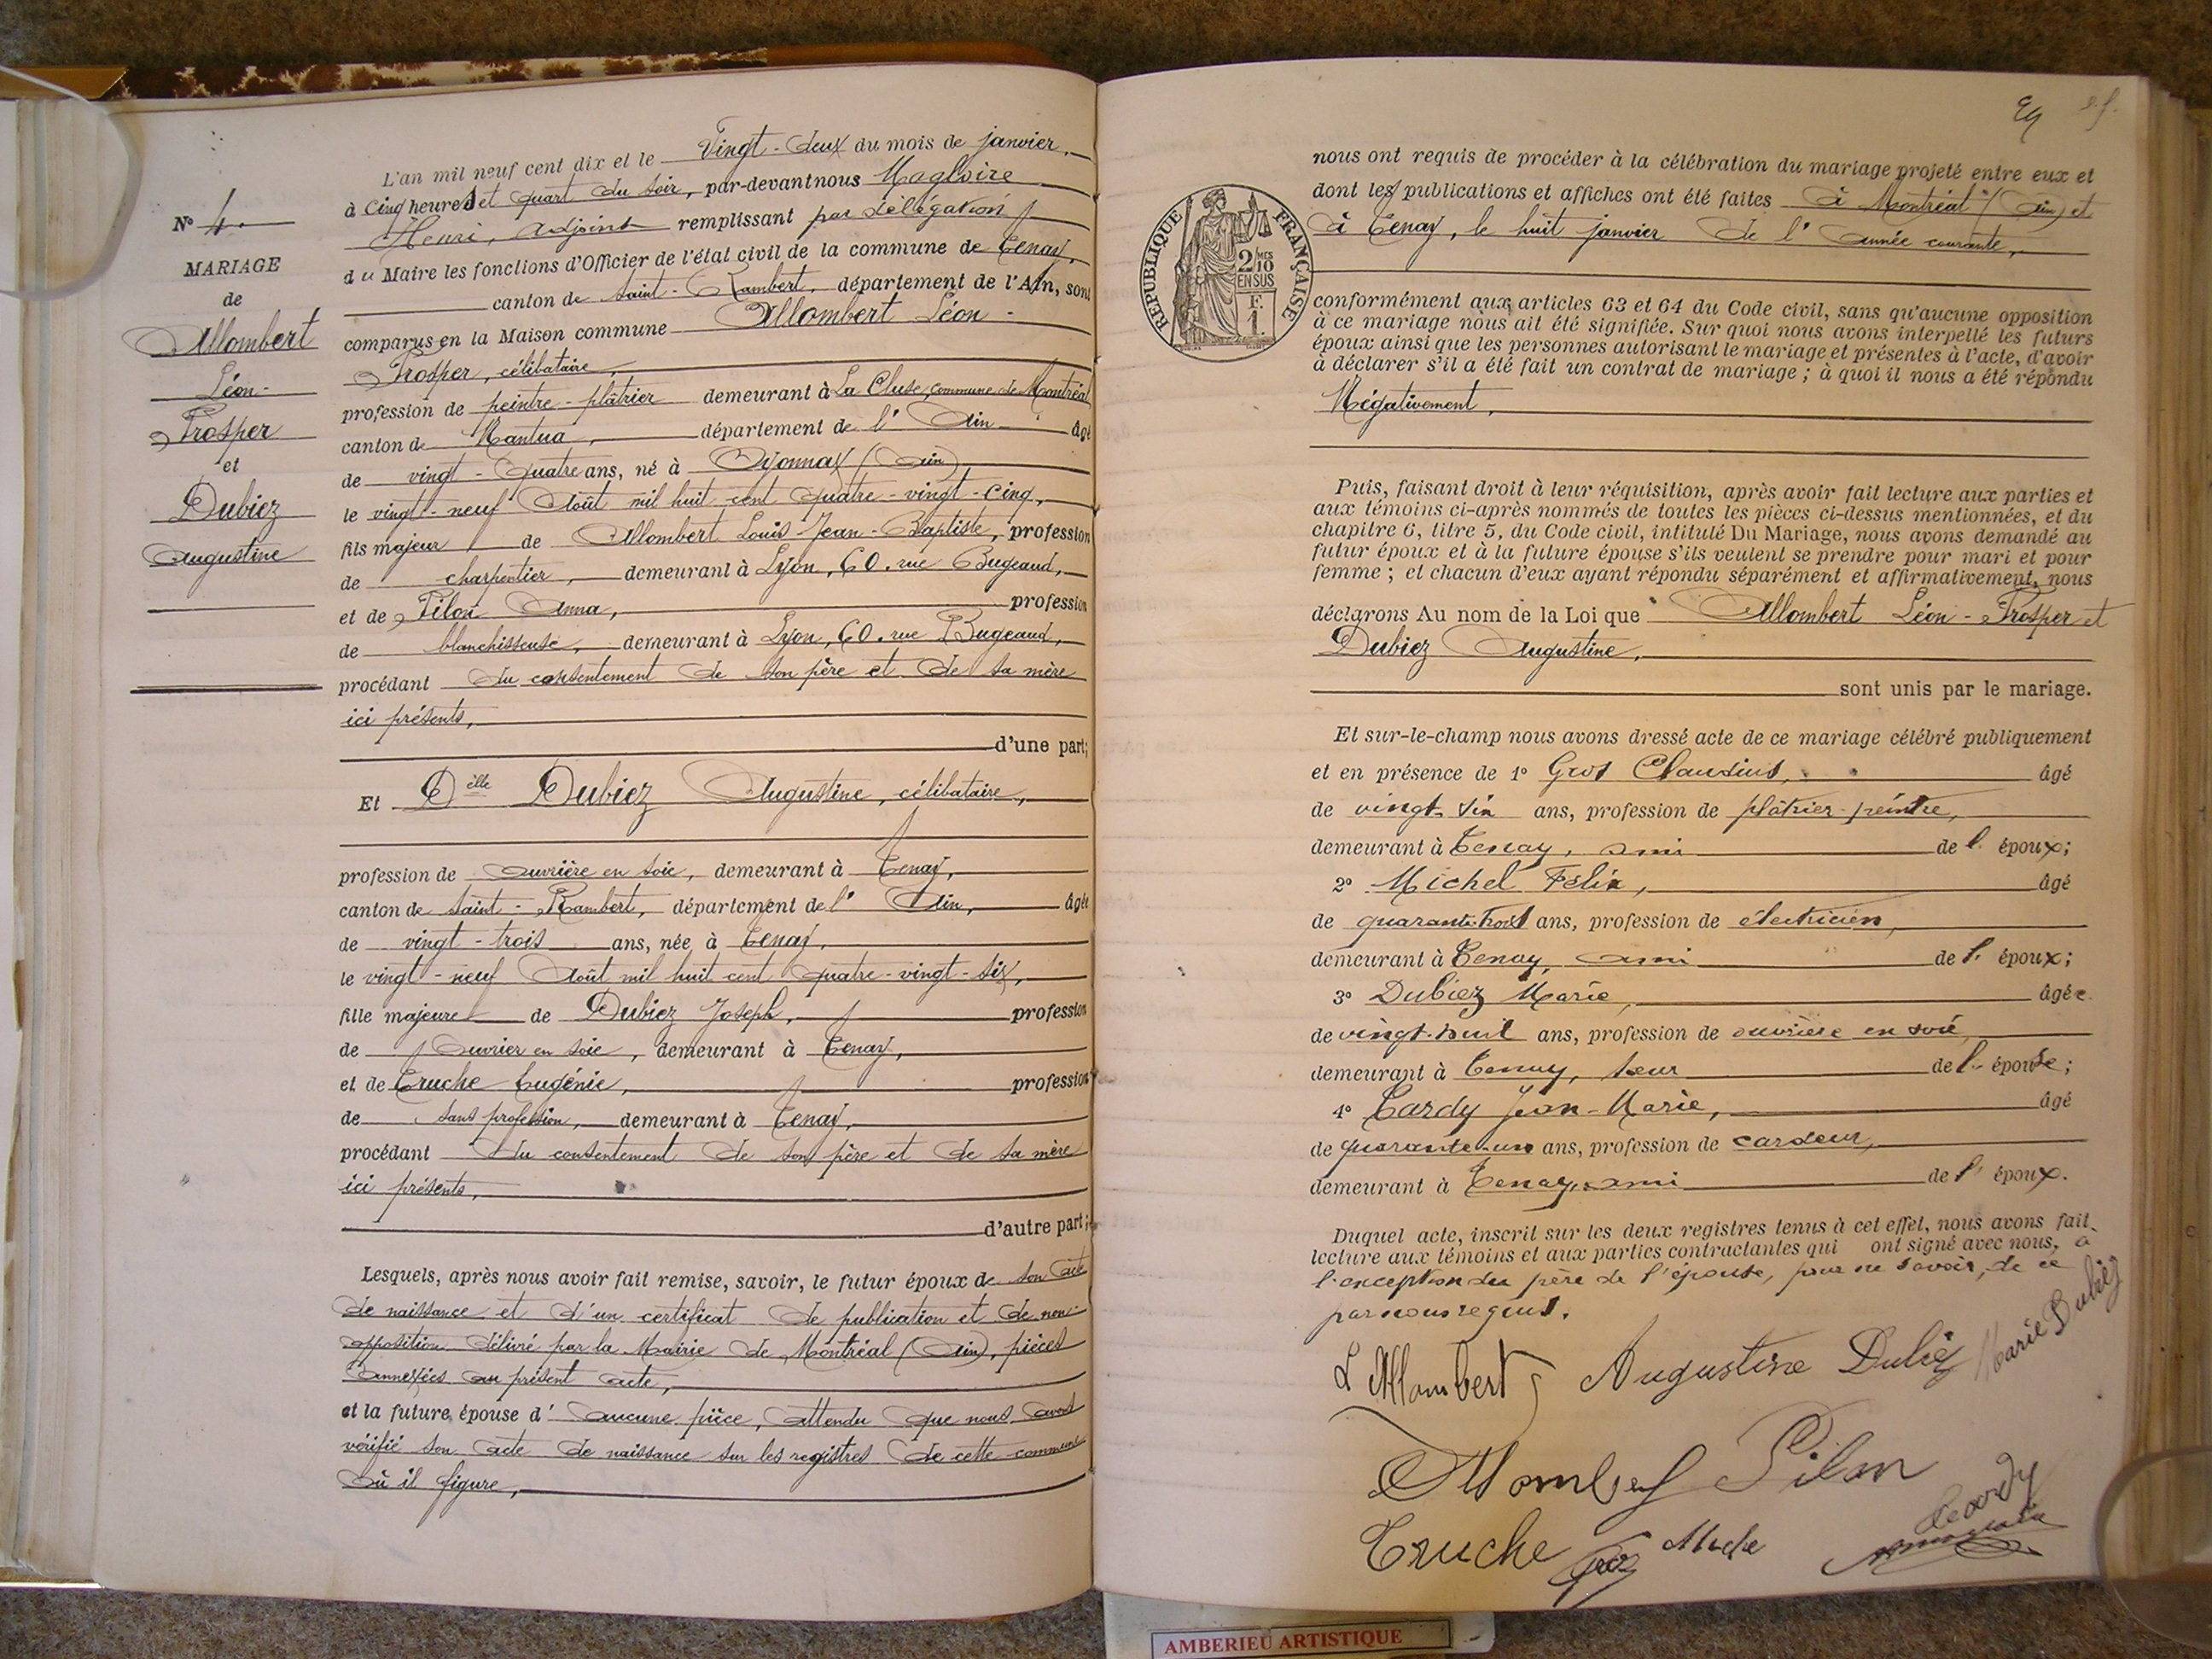 N° 4.
MARIAGE
de
Allombert
Léon-
Prosper
et
Dubiez
Augustine
L'an mil neuf cent dix et le Vingt-deux du mois de janvier,
à Cinq heures et quart du soir, par-devant nous Magloire
Henri, Adjoint remplissant par délégation
du Maire les fonctions d'Officier de l'état civil de la commune de Tenay,
canton de Saint-Rambert, département de l'Ain, sont
comparus en la Maison commune Allombert Léon-
Prosper, célibataire,
profession de peintre-plâtrier demeurant à La Cluse, commune de Montréal
canton de Nantua, département de l'Ain âgé
de vingt-quatre ans, né à Oyonnax (Ain)
le vingt-neuf Août mil huit cent quatre-vingt-cinq,
fils majeur de Allombert Louis-Jean-Baptiste, profession
de charpentier, demeurant à Lyon, 60. rue Bugeaud,
et de Pilon Anna, profession
de blanchisseuse, demeurant à Lyon, 60. rue Bugeaud,
procédant du consentement de son père et de sa mère
ici présents,
d'une part;
Et Delle Dubiez Augustine, célibataire,
profession de ouvrière en soie, demeurant à Tenay,
canton de Saint-Rambert, département de l'Ain, âgée
de vingt-trois ans, née à Tenay,
le vingt-neuf Août mil huit cent quatre-vingt-six,
fille majeure de Dubiez Joseph, profession
de Ouvrier en soie, demeurant à Tenay,
et de Truche Eugénie, profession
de sans profession, demeurant à Tenay,
procédant du consentement de son père et de sa mère
ici présents,
d'autre part;
Lesquels, après nous avoir fait remise, savoir, le futur époux de son acte
de naissance et d'un certificat de publication et de non-
opposition délivré par la Mairie de Montréal (Ain), pièces
annexées au présent acte,
et la future épouse d'aucune pièce, attendu que nous avons
vérifié son acte de naissance sur les registres de cette commune
où il figure,
nous ont requis de procéder à la célébration du mariage projeté entre eux et
dont les publications et affiches ont été faites à Montréal (Ain) et
à Tenay, le huit janvier de l'année courante,
RÉPUBLIQUE FRANÇAISE
2/10 MES
EN SUS
F.
1.
conformément aux articles 63 et 64 du Code civil, sans qu'aucune opposition
à ce mariage nous ait été signifiée. Sur quoi nous avons interpellé les futurs
époux ainsi que les personnes autorisant le mariage et présentes à l'acte, d'avoir
à déclarer s'il a été fait un contrat de mariage ; à quoi il nous a été répondu
Négativement,
Puis, faisant droit à leur réquisition, après avoir fait lecture aux parties et
aux témoins ci-après nommés de toutes les pièces ci-dessus mentionnées, et du
chapitre 6, titre 5, du Code civil, intitulé Du Mariage, nous avons demandé au
futur époux et à la future épouse s'ils veulent se prendre pour mari et pour
femme ; et chacun d'eux ayant répondu séparément et affirmativement, nous
déclarons Au nom de la Loi que Allombert Léon-Prosper et
Dubiez Augustine,
sont unis par le mariage.
Et sur-le-champ nous avons dressé acte de ce mariage célébré publiquement
et en présence de 1° Gros Claudius, âgé
de vingt-six ans, profession de plâtrier-peintre,
demeurant à Tenay, ami de l'époux;
2° Michel Félix, âgé
de quarante-trois ans, profession de électricien,
demeurant à Tenay, ami de l'époux;
3° Dubiez Marie, âgée
de vingt-huit ans, profession de ouvrière en soie,
demeurant à Tenay, sœur de l'épouse;
4° Cardy Jean-Marie, âgé
de quarante-un ans, profession de cardeur,
demeurant à Tenay, ami de l'époux.
Duquel acte, inscrit sur les deux registres tenus à cet effet, nous avons fait
lecture aux témoins et aux parties contractantes qui ont signé avec nous, à
l'exception du père de l'épouse, pour ne savoir, de ce
par nous requis.
L Allombert Augustine Dubiez Marie Dubiez
Allombert Pilon
Truche Gros Cardy
AMBERIEU ARTISTIQUE